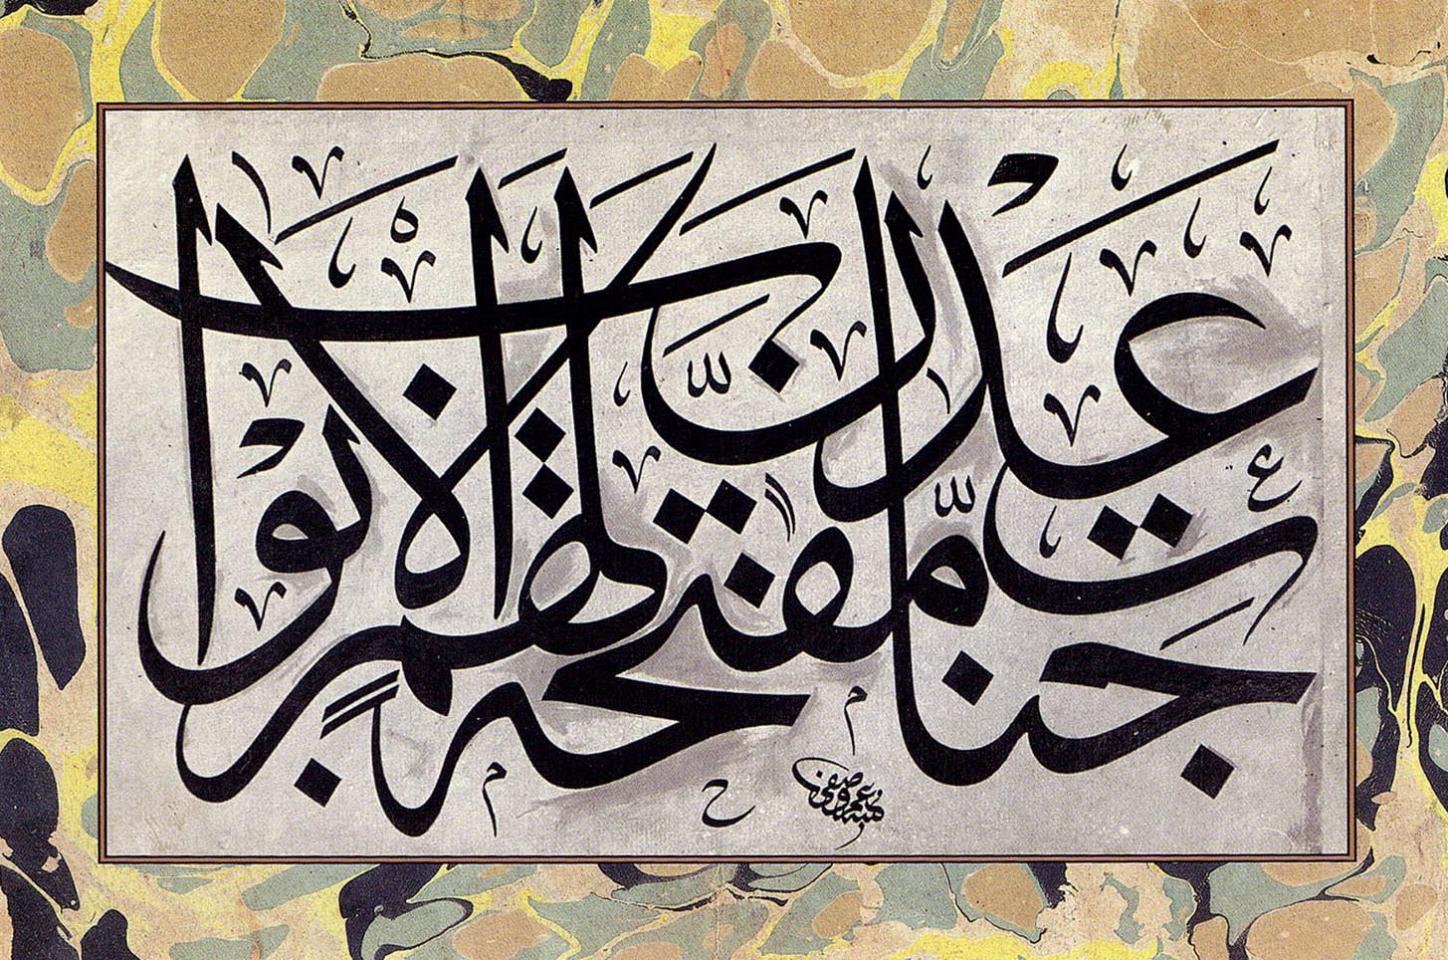 جَنَّاتِ عَدْنٍ مُفَتَّحَةً لَهُمُ الْاَبْوَابُ